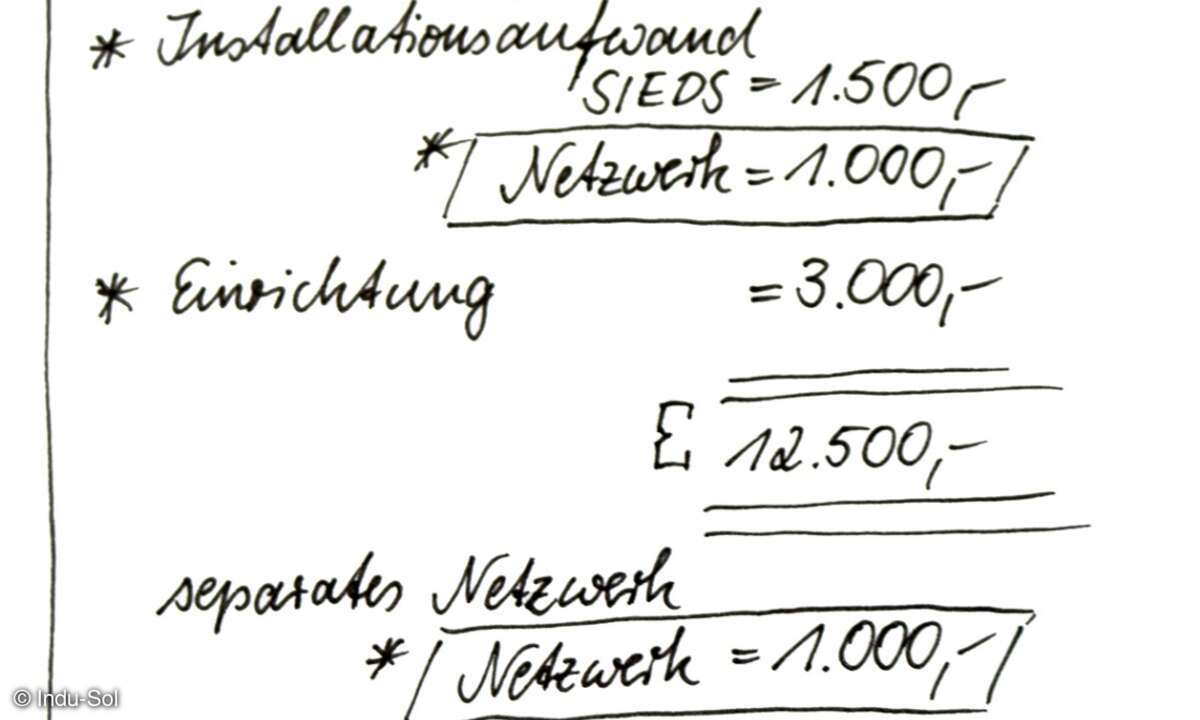 * Installationsaufwand
SIEDS = 1.500,-
* Netzwerk = 1.000,-
* Einrichtung = 3.000,-
Σ 12.500,-
separates Netzwerk
* Netzwerk = 1.000,-
© Indu-Sol